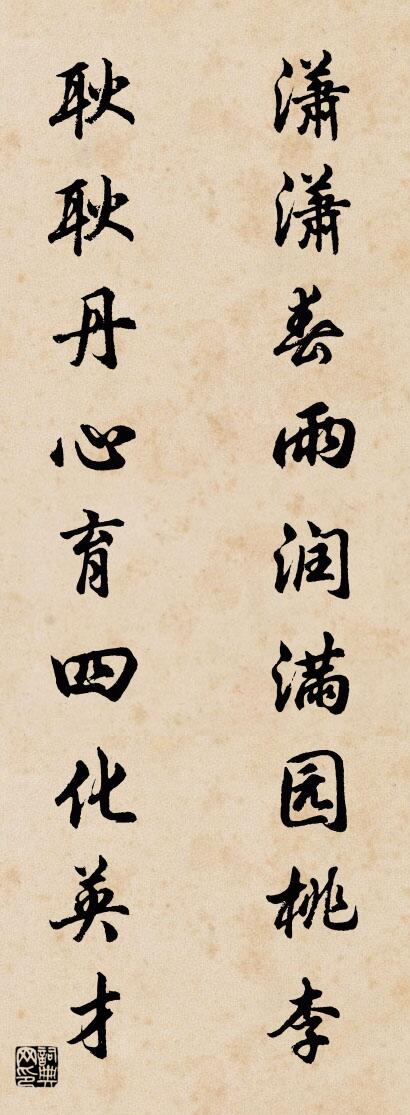 潇潇春雨润满园桃李
耿耿丹心育四化英才
词典网印